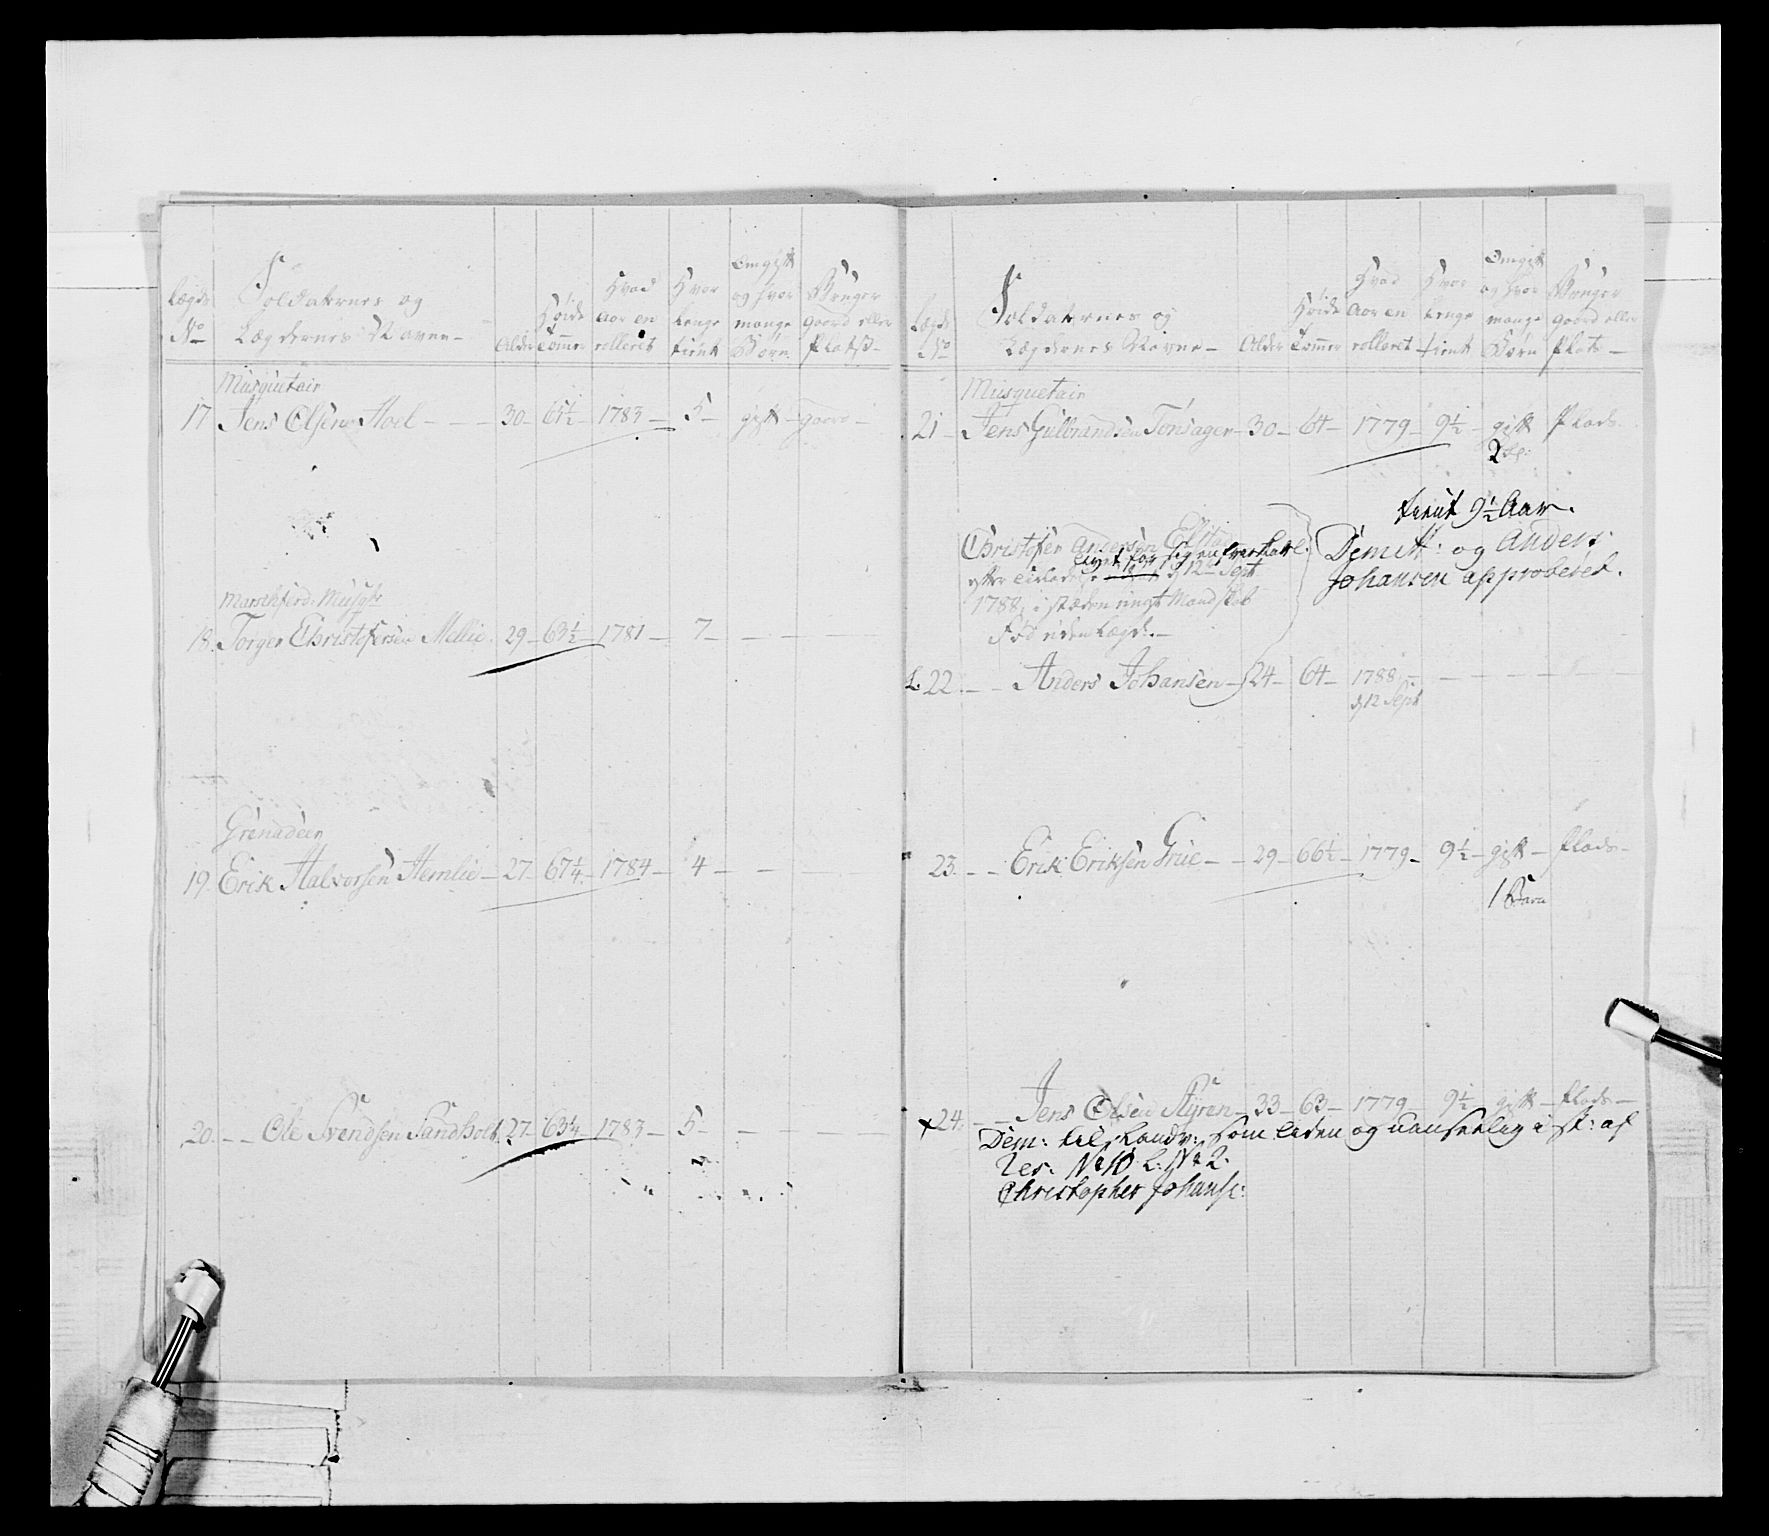 Lægds No
Soldaternes og Lægdernes Navne
Alder
Høide Tommer
Hvad Aar en rolleret
Hvor lenge tient
Om gift og hvor mange Børn
Bruger Gaard eller Plads
Musquetair
17 Jens Olsen Hoel - - - 30 - 65½ - 1783 - 5 - gift - gaard -
Marschferd. Musqt:
18. Torger Christofersen Mellie - 29 - 63½ - 1781 - 7 -
Grenadeer
19. Erik Halvorsen Hemlie - 27 - 67¼ - 1784 - 4 -
20 - - Ole Svendsen Sandholt. 27 - 63¼ - 1783 - 5 -
Lægds No
Soldaternes og Lægdernes Navne -
Alder
Høide Tommer
Hvad Aar en rolleret
Hvor lenge tient
Om gift og hvor mange Børn
Bruger Gaard eller Plads -
Musquetair
21 - Jens Gulbrandsen Tonsager - 30 - 64 - 1779 - 9½ - gift Plads -
2
tient 9½ Aar.
Christofer Andersen
Demitt: og Anders
Johansen approberet.
d 12te Sept
1788, i stæden ringt Mandskab
Fød uden Lægd. -
L. 22. - - Anders Johansen - 24 - 64 - 1788 -
d 12 Sept
23. - - Erik Eriksen Grue - - 29 - 66½ - 1779 - 9½ - gift - Plads -
1 Barn
+ 24. - - Jens Olsen Styren - 33 - 63 - 1779 9½ gift - Plads -
Dem: til Landv: som liden og uanseelig i st: af
Res: No 10 L: No 2.
Christopher Johans: